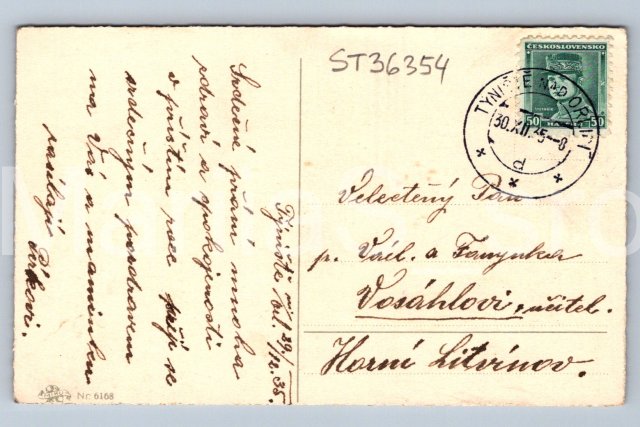 ST36354
ČESKOSLOVENSKO
50 50
TÝNIŠTĚ NAD ORLICÍ
30.XII.35-8
d
Týniště n./Orl. 29./12.35.
Srdečné přání mnoha
zdraví a spokojnosti
v příštím roce přejí se
srdečným pozdravem
na Vás a maminku
zasílají
Velectěný Pán
p. Václ. a Fanynka
Vosáhlovi, učitel.
Horní Litvínov.
Nr. 6168